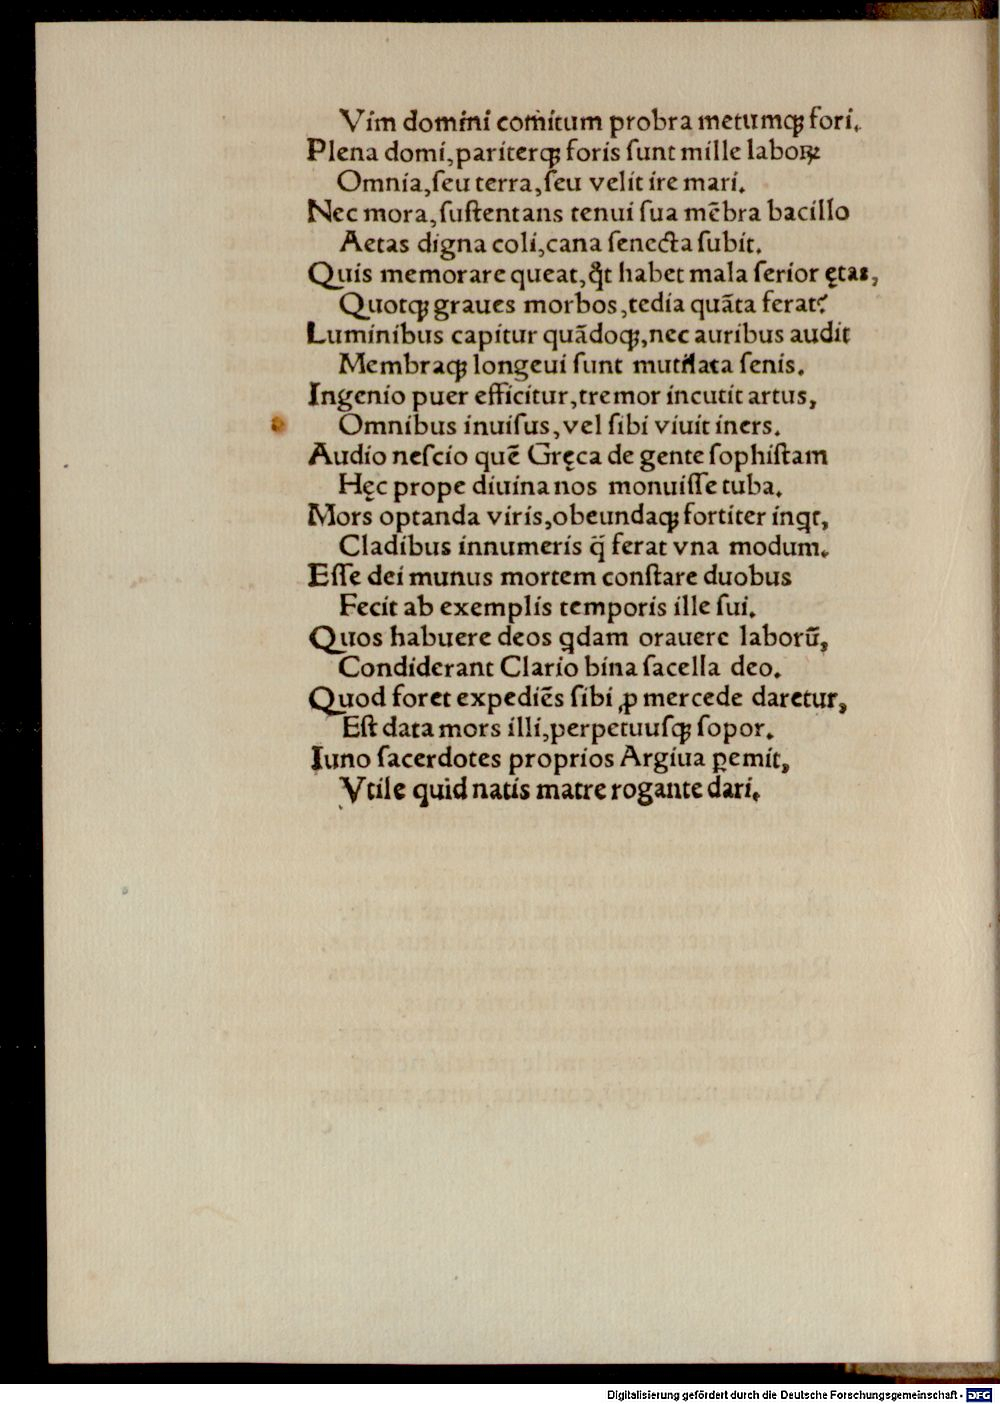 Vim domini comitum probra metumqꝫ fori.
Plena domi,pariterqꝫ foris sunt mille laboꝝ
Omnia,seu terra,seu velit ire mari.
Nec mora,sustentans tenui sua mēbra bacillo
Aetas digna coli,cana senecta subit.
Quis memorare queat,q̃t habet mala serior ętas,
Quotqꝫ graues morbos,tedia quāta ferat?
Luminibus capitur quādoqꝫ,nec auribus audit
Membraqꝫ longeui sunt mutilata senis.
Ingenio puer efficitur,tremor incutit artus,
Omnibus inuisus,vel sibi viuit iners.
Audio nescio quē Gręca de gente sophistam
Hęc prope diuina nos monuisse tuba.
Mors optanda viris,obeundaqꝫ fortiter inqt,
Cladibus innumeris q̄ ferat vna modum.
Esse dei munus mortem constare duobus
Fecit ab exemplis temporis ille sui.
Quos habuere deos qdam orauere laborū,
Condiderant Clario bina sacella deo.
Quod foret expediēs sibi ꝓ mercede daretur,
Est data mors illi,perpetuusqꝫ sopor.
Iuno sacerdotes proprios Argiua ꝑemit,
Vtile quid natis matre rogante dari.
Digitalisierung gefördert durch die Deutsche Forschungsgemeinschaft - DFG